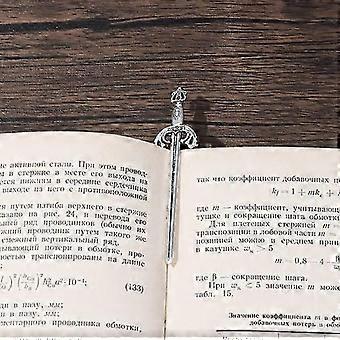 ие активной стали. При этом провод-
в стержне в месте его выхода на
ется нижним в середине сердечника
выходе из него с противоположной
ся путем изгиба верхнего в стержне
казано на рис. 24, и перевода его
ий ряд проводников (обычно их
жний проводник путем такого же
смежный вертикальный ряд.
ывающий потери в обмотке, про-
остью транспонированы на длине
(133)
ди в пазу, мм;
в пазу, мм;
ментарного проводника обмотки,
так что коэффициент добавочных по
k = 1 + mk
где m — коэффициент, учитывающ
тушке и сокращение шага обмотк
Для плетеных стержней m
транспозиции в лобовой части m =
позицией можно в среднем прин
в катушке > 5
m = 0,8 — 4
где β — сокращение шага.
При ≤ 5 значение m может
табл. 15,
Значение коэффициента m в фо
добавочных потерь в обмот